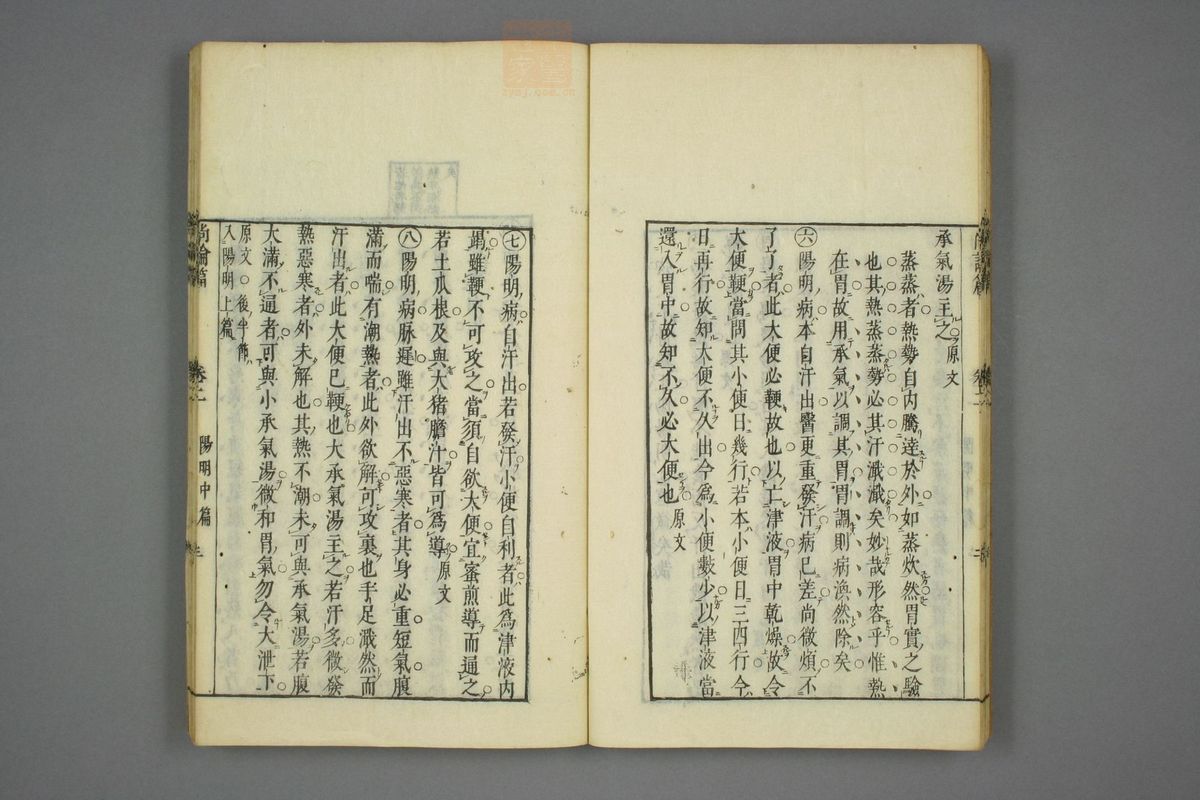 承氣湯主之原文
蒸蒸者熱勢自內騰達於外如蒸炊然胃實之驗
也其熱蒸蒸勢必其汗濈濈矣妙哉形容乎惟熱
在胃故用承氣以調其胃胃調則病渙然除矣
㊅陽明病本自汗出醫更重發汗病已差尚微煩不
了了者此大便必鞕故也以亡津液胃中乾燥故令
大便鞕當問其小便日幾行若本小便日三四行今
日再行故知大便不久出今爲小便數少以津液當
還入胃中故知不久必大便也原文
㊆陽明病自汗出若發汗小便自利者此爲津液內
竭雖鞕不可攻之當須自欲大便宜蜜煎導而通之
若土瓜根及與大猪膽汁皆可爲導原文
㊇陽明病脉遲雖汗出不惡寒者其身必重短氣腹
滿而喘有潮熱者此外欲解可攻裏也手足濈然而
汗出者此大便已鞕也大承氣湯主之若汗多微發
熱惡寒者外未解也其熱不潮未可與承氣湯若腹
大滿不通者可與小承氣湯微和胃氣勿令大泄下
原文○後半節
入陽明上篇
尚論篇 卷二 陽明中篇